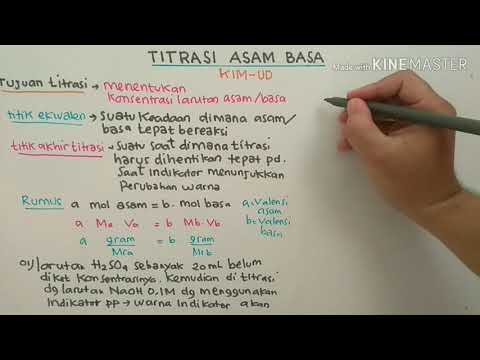 TITRASI ASAM BASA
Made with KINEMASTER
KIM-UD
Tujuan titrasi → menentukan
konsentrasi larutan asam/basa
titik ekivalen → suatu keadaan dimana asam/
basa tepat bereaksi
titik akhir titrasi → suatu saat dimana titrasi
harus dihentikan tepat pd.
saat indikator menunjukkan
Perubahan warna
Rumus → a mol asam = b. mol basa a=valensi
asam
a Ma Va = b Mb. Vb b=valensi
basa
a gram/Mra = b gram/Mrb
01/ larutan H₂SO₄ sebanyak 20 mL belum
diket konsentrasinya. Kemudian di titrasi
dg larutan NaOH 0,1M dg menggunakan
Indikator pp → warna indikator akan